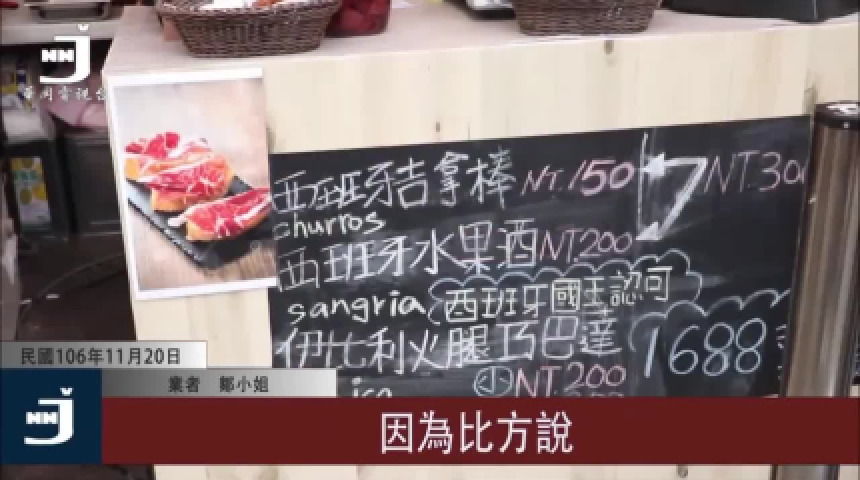 NNJ
華岡電視台
西班牙吉拿棒 NT.150
NT.300
churros
西班牙水果酒 NT.200
sangria 西班牙國王認可
伊比利火腿巧巴達
1688
小 NT.200
民國106年11月20日
業者 鄒小姐
NNJ
因為比方說